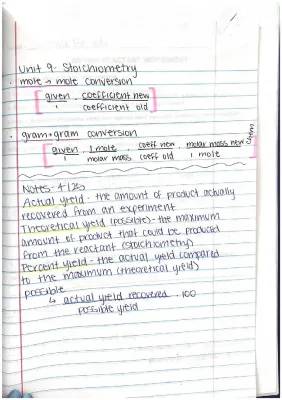 Unit 9- Stoichiometry
• mole → mole conversion
given . coefficient new
1 coefficient old
• gram → gram conversion
given . 1 mole . coeff new . molar mass new
1 molar mass coeff old 1 mole
Notes- 4/25
Actual yield - the amount of product actually
recovered from an experiment
Theoretical yield (possible) - the maximum
amount of product that could be produced
from the reactant (stoichiometry)
Percent yield - the actual yield compared
to the maximum (theoretical yield)
possible
↳ actual yield recovered . 100
possible yield